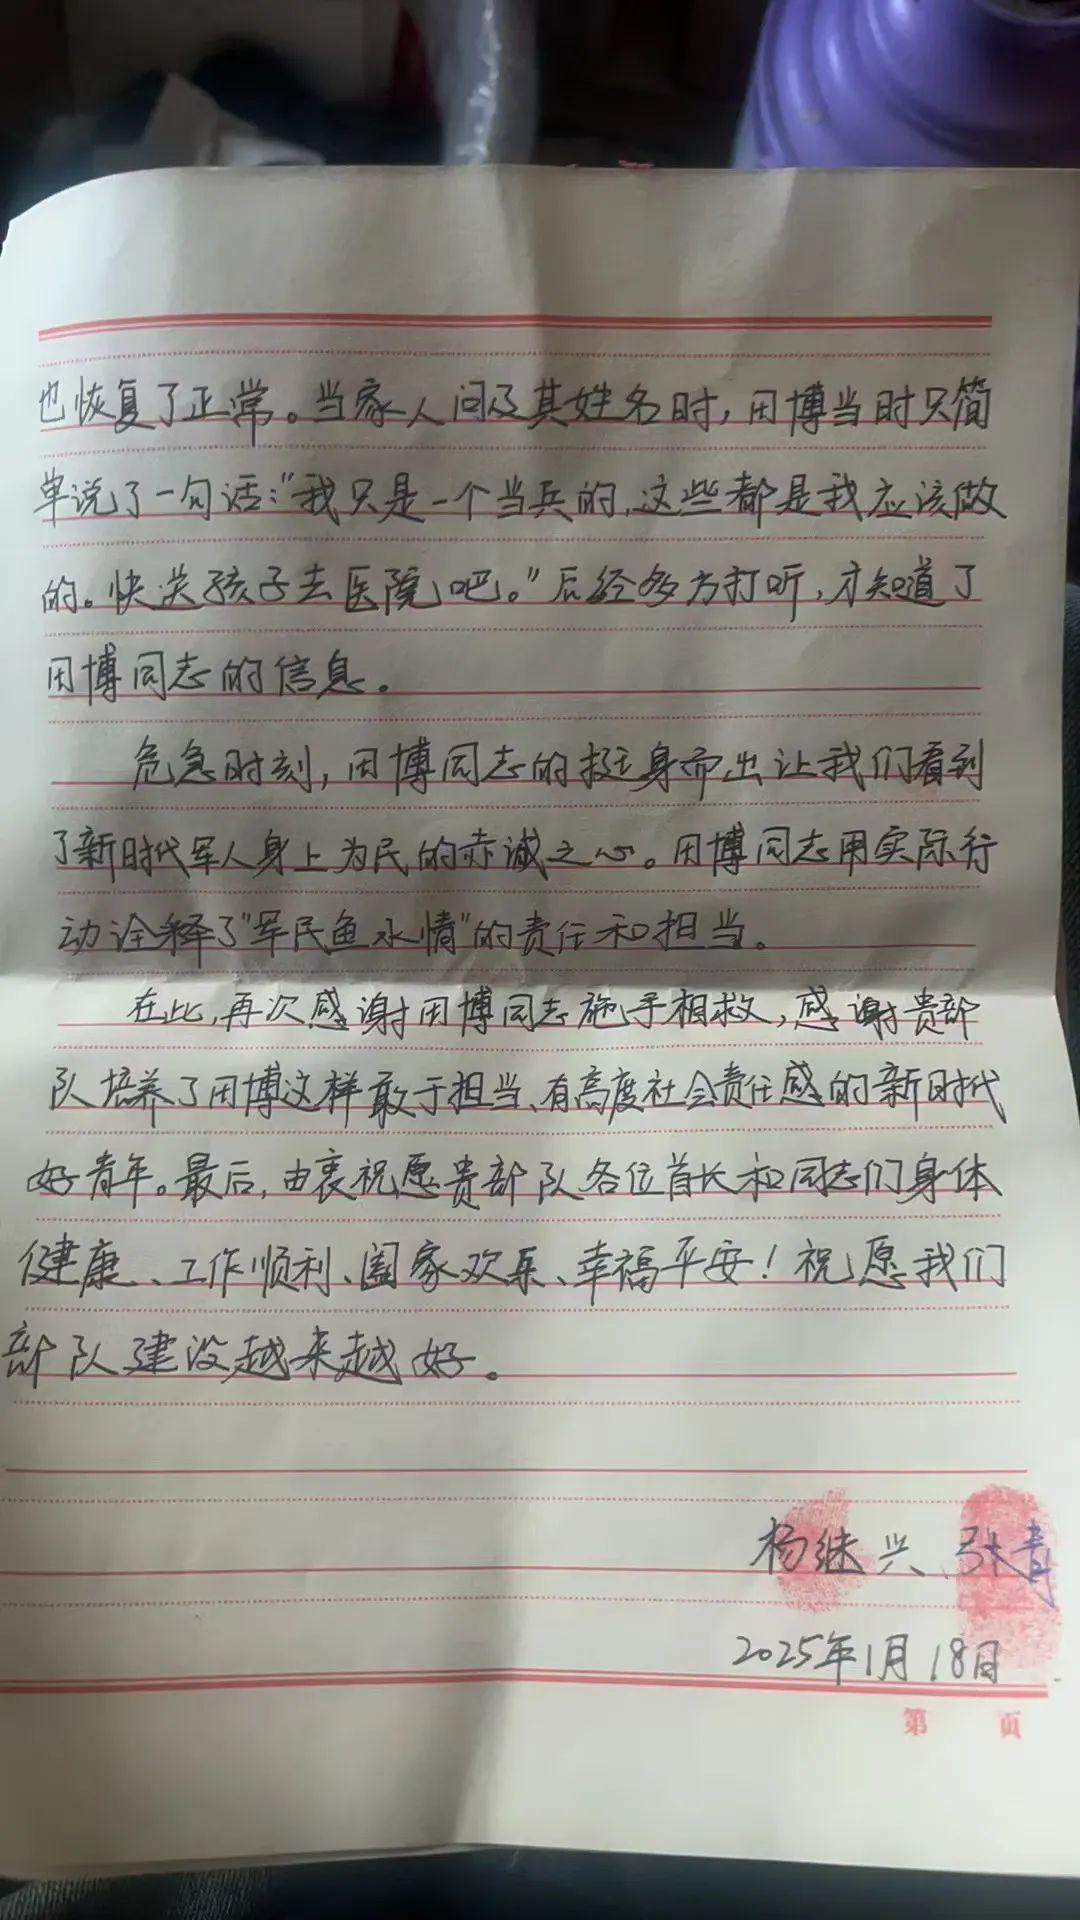 也恢复了正常。当家人问及其姓名时，田博当时只简
单说了一句话：“我只是一个当兵的，这些都是我应该做
的。快送孩子去医院吧。”后经多方打听，才知道了
田博同志的信息。
危急时刻，田博同志的挺身而出让我们看到
了新时代军人身上为民的赤诚之心。田博同志用实际行
动诠释了“军民鱼水情”的责任和担当。
在此，再次感谢田博同志施手相救，感谢贵部
队培养了田博这样敢于担当、有高度社会责任感的新时代
好青年。最后，由衷祝愿贵部队各位首长和同志们身体
健康、工作顺利、阖家欢乐、幸福平安！祝愿我们
部队建设越来越好。
杨继兴、张青
2025年1月18日
第 页